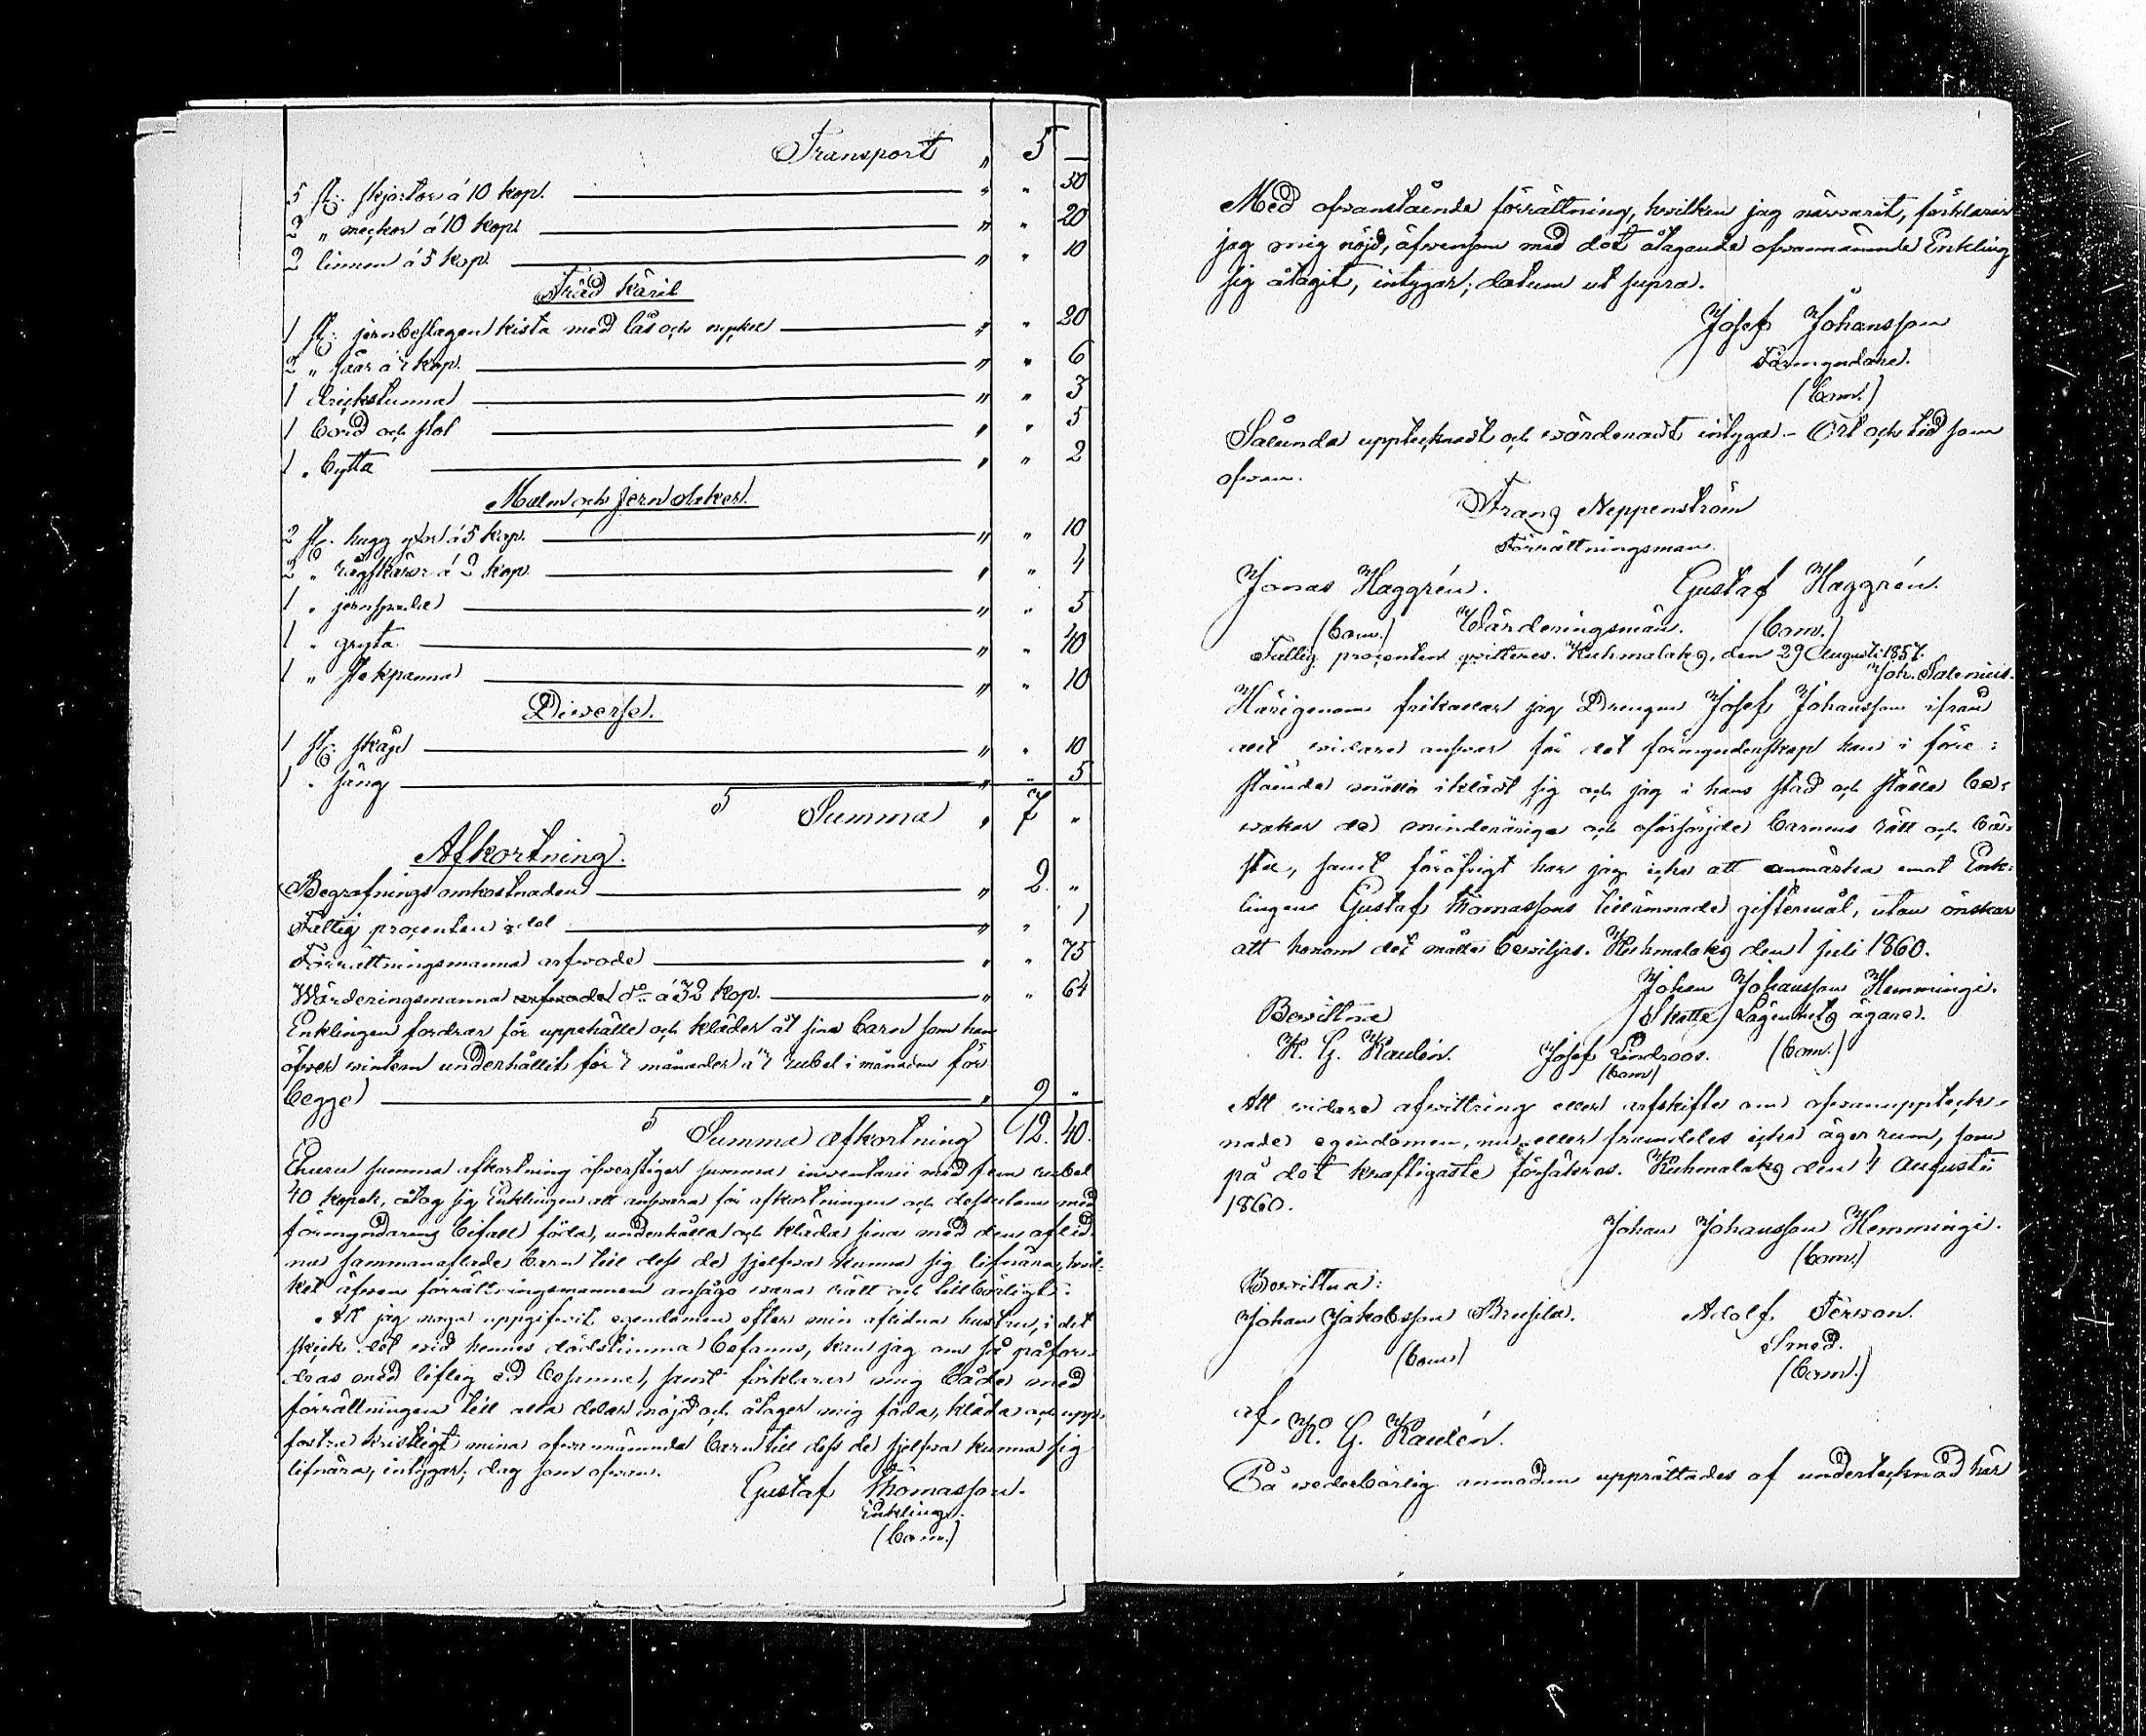 Transport " 5 —
5 st: skjortor á 10 kop. " " 50
2 " mössor á 10 kop. " " 20
2 linnen á 5 kop. " " 10
Träd Käril
1 st: jernbeslagen kista med lås och nyckel " " 20
2 " såar á 3 kop. " " 6
1 drickstunna " " 3
1 bord och stol " " 5
1 " bytta " " 2
Malm och jernsaker.
2 st. hugg yxor á 5 kop. " " 10
2 " rågskäror á 2 kop. " " 4
1 " jernspade " " 5
1 " gryta " " 40
1 " stekpanna " " 10
Diverse.
1 st: skåp " " 10
1 " säng " " 5
S Summa " 7 "
Afkortning.
Begrafnings omkostnaden " 2 "
Fattig procenten " " 1
Förrättningsmanna arfvode " " 75
Wärderingsmanna arfvode do á 32 kop. " " 64
Enklingen fordrar för uppehälle och kläder åt sina barn som han
öfver wintern underhållit för månader á rubel i månaden för
begge " 9 "
S Summa afkortning 12. 40.
Ehuru summa afkortning öfverstiger summa inventarii med fem rubel
40 kopek, åtog sig Enklingen att answara för afkortningen och dessutom med
förmyndarens bifall föda, underhålla och kläda sina med den aflid-
na sammanaflade barn till dess de sjelfva kunna sig lifnära, hvil-
ket äfven förrättningsmannen ansågo wara rätt och tillbörligt.
Att jag noga uppgifwit egendomen efter min aflidna hustru, i det
skick det wid hennes dödstimma befanns, kan jag om så påfor-
dras med liflig ed besanna, samt förklarar mig både med
förrättningen till alla delar nöjd och åtager mig föda, kläda och upp-
fostra kristligt mina ofvannämnda barn till dess de sjelfva kunna sig
lifnära, intygar, dag som ofvan.
Gustaf Thomasson.
Enkling.
(bom.)
Med ofvanstående förrättning, hvilken jag närvarit, förklarar
jag mig nöjd, äfvensom med det åtagande ofvannämnde Enkling
sig åtagit, intygar; datum ut supra.
Josef Johansson
Förmyndare.
(bom.)
Sålunda uppteknadt och wärderadt intyga. Ort och tid som
ofvan.
Franz Neppenström
Förrättningsman.
Jonas Haggrén. Gustaf Haggrén.
(bom.) Wärderingsmän. (bom.)
Fattig procenten qvitteras. Kuhmalaks, den 29 Augusti 1857.
Joh. Salenius.
Härigenom frikallar jag Drengen Josef Johansson ifrån
allt vidare answar för det förmynderskap han i före-
stående måtto iklädt sig och jag i hans stad och ställe be-
vakar de minderåriga och oförsörjde barnens rätt och bä-
sta, samt föröfrigt har jag icke att anmärka emot Enk-
lingen Gustaf Thomassons tillämnade giftermål, utan önskar
att honom det måtte bewiljas. Kuhmalaks den 1 juli 1860.
Johan Johansson Hemmingi.
(Skatte) Lägenhets ägare.
Bewittna
K. G. Kaulén. Josef Lindroos. (bom.)
(bom)
Att vidare afwittring eller arfskifte om ofvanuppteck-
nade egendomen, nu eller framdeles icke äger rum, som
på det kraftigaste försäkras. Kuhmalaks den 4 Augusti
1860.
Johan Johansson Hemmingi.
(bom.)
Bewittna:
Johan Jakobsson Brusila. Adolf Terwon.
(bom) Smed.
(bom.)
af K. G. Kaulén.
På wederbörlig anmodan upprättades af undertecknad här